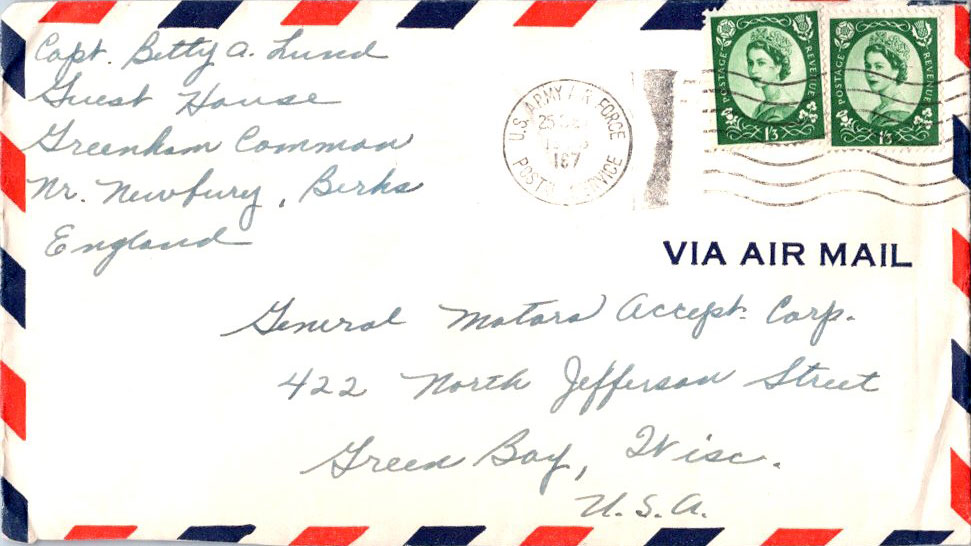 Capt. Betty A. Lund
Guest House
Greenham Common
Nr. Newbury, Berks
England
U.S. ARMY AIR FORCE
25
167
POSTAL SERVICE
POSTAGE REVENUE
1/3
POSTAGE REVENUE
1/3
VIA AIR MAIL
General Motors Accept. Corp.
422 North Jefferson Street
Green Bay, Wisc.
U.S.A.